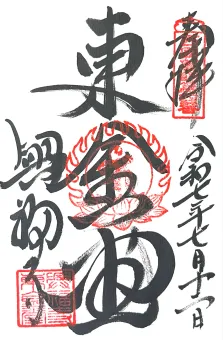 奉拝
令和七年七月十二日
東金堂
興福寺